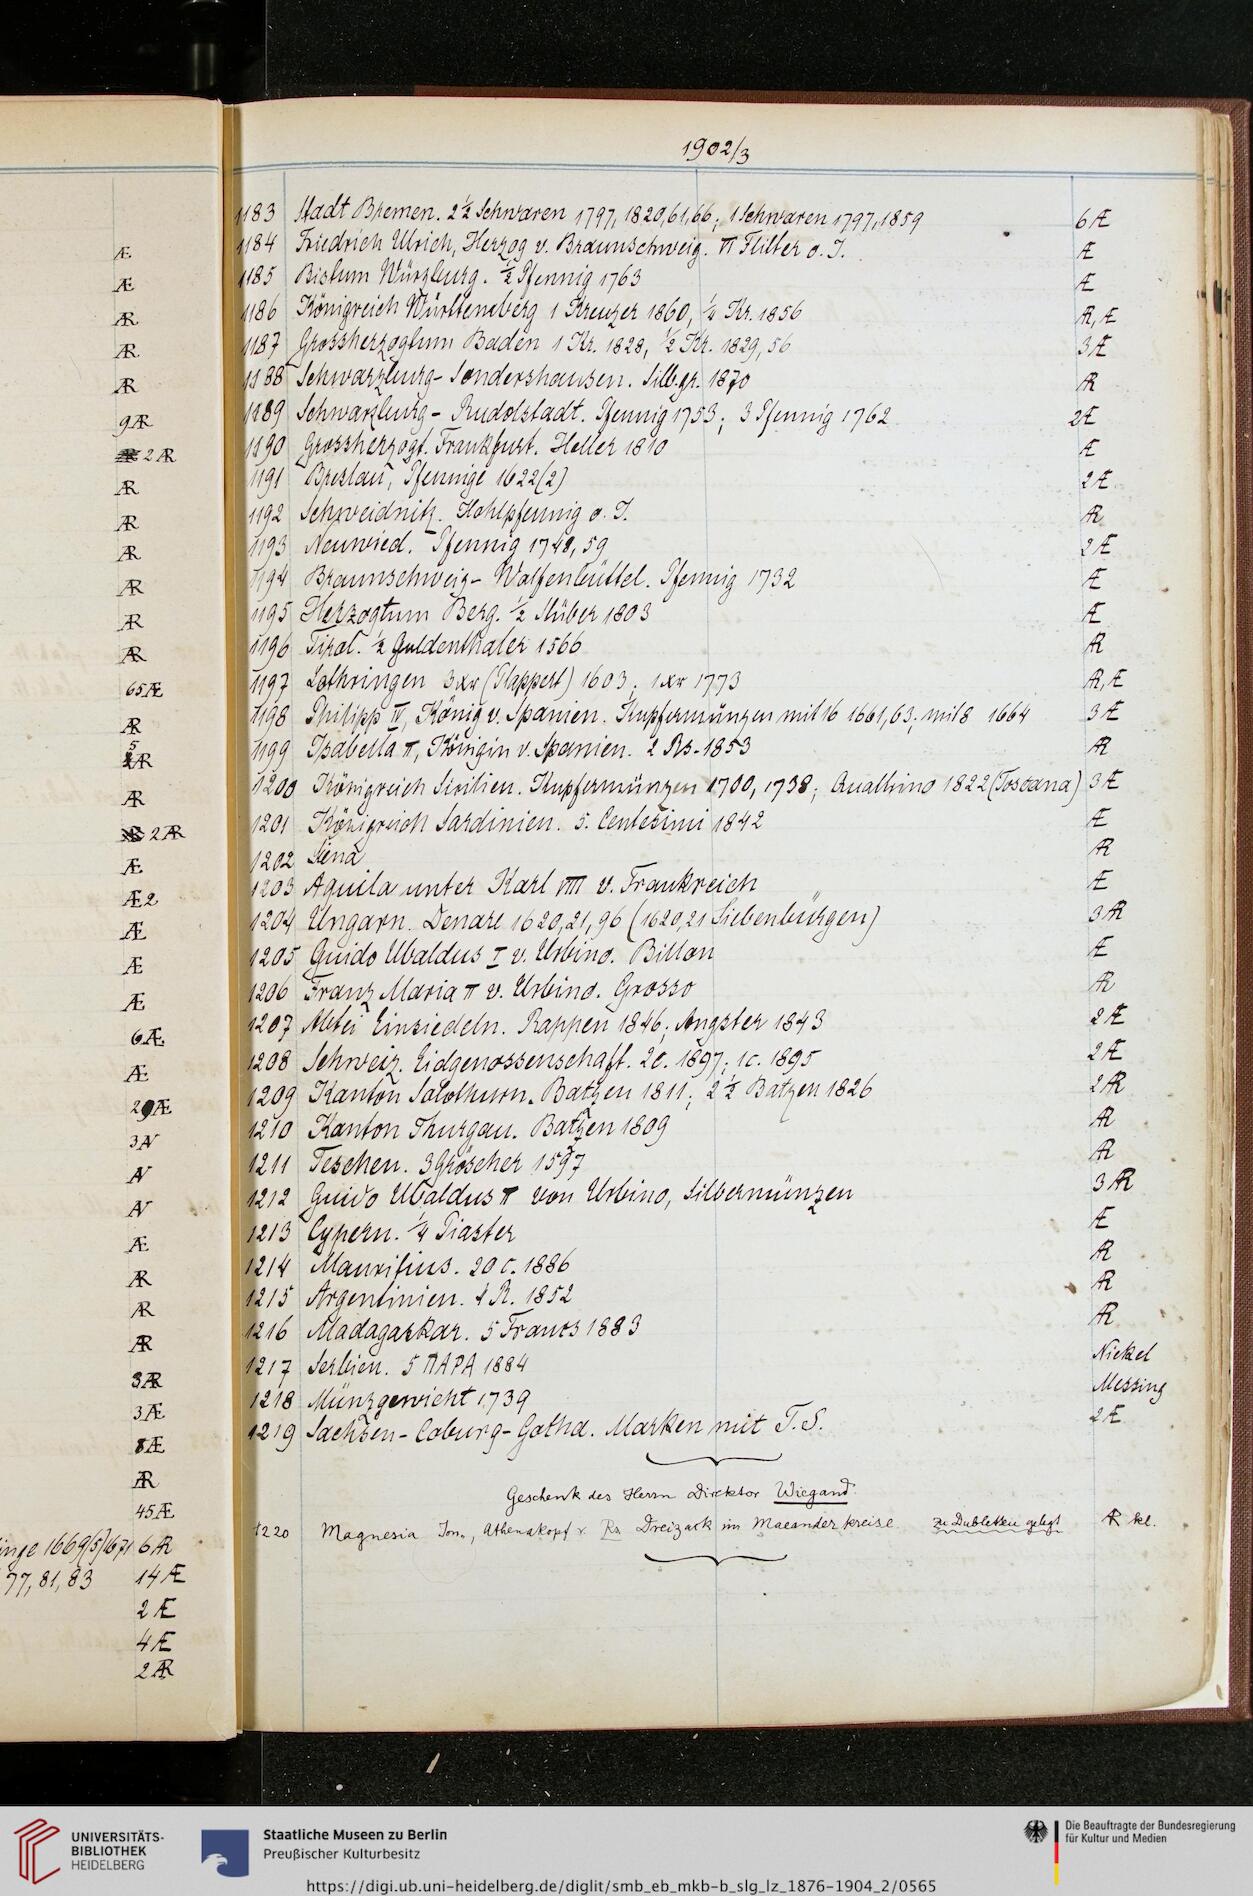 1902/3
Æ
Æ
AR
AR
AR
9AR
2 AR
AR
AR
AR
AR
AR
AR
65Æ
AR
5
AR
AR
2AR
Æ
Æ2
Æ
Æ
Æ
6Æ
Æ
29Æ
3 AV
AV
AV
Æ
AR
AR
AR
3AR
3Æ
8Æ
AR
45Æ
inge 1669(5)1671 6 AR
77, 81, 83 14 Æ
2 Æ
4 Æ
2 AR
1183 Stadt Bremen. 2½ Schwaren 1797, 1820,61,66; 1 Schwaren 1797, 1859 6 Æ
1184 Friedrich Ulrich, Herzog v. Braunschweig. II Flitter o. J. Æ
1185 Bistum Würzburg. ½ Pfennig 1763 Æ
1186 Königreich Württemberg 1 Kreuzer 1860, ¼ Kr. 1856 AR, Æ
1187 Grossherzogtum Baden 1 Kr. 1828, ½ Kr. 1829, 56 3 Æ
1188 Schwarzburg-Sondershausen. Silb.gr. 1870 AR
1189 Schwarzburg-Rudolstadt. Pfennig 1753; 3 Pfennig 1762 2Æ
1190 Grossherzogt. Frankfurt. Heller 1810 Æ
1191 Breslau, Pfennige 1622(2) 2 Æ
1192 Schweidnitz. Hohlpfennig o. J. AR
1193 Neuwied. Pfennig 1748, 59 2 Æ
1194 Braunschweig-Wolfenbüttel. Pfennig 1732 Æ
1195 Herzogtum Berg. ½ Stüber 1803 Æ
1196 Tirol. ½ Guldenthaler 1566 AR
1197 Lothringen 3 xr (Plappert) 1603; 1 xr 1773 AR, Æ
1198 Philipp IV, König v. Spanien. Kupfermünzen mit 16 1661, 63; mit 8 1664 3 Æ
1199 Isabella II, Königin v. Spanien. 2 Rs. 1853 AR
1200 Königreich Sicilien. Kupfermünzen 1700, 1738; Quattrino 1822 (Toscana) 3 Æ
1201 Königreich Sardinien. 5. Centesimi 1842 Æ
1202 Siena AR
1203 Aquila unter Karl VIII v. Frankreich Æ
1204 Ungarn. Denare 1620, 21, 96 (1620, 21 Siebenbürgen) 3 AR
1205 Guido Ubaldus I v. Urbino. Billon Æ
1206 Franz Maria II v. Urbino. Grosso AR
1207 Abtei Einsiedeln. Rappen 1846; Angster 1843 2 Æ
1208 Schweiz. Eidgenossenschaft. 2c. 1897; 1c. 1895 2 Æ
1209 Kanton Solothurn. Batzen 1811; 2½ Batzen 1826 2 AR
1210 Kanton Thurgau. Batzen 1809 AR
1211 Teschen. 3 Gröscher 1597 AR
1212 Guido Ubaldus II von Urbino, Silbermünzen 3 AR
1213 Cypern. ¼ Piaster Æ
1214 Mauritius. 20 c. 1886 AR
1215 Argentinien. 4 R. 1852 AR
1216 Madagaskar. 5 Francs 1883 AR
1217 Serbien. 5 ПАРА 1884 Nickel
1218 Münzgewicht 1739 Messing
1219 Sachsen-Coburg-Gotha. Marken mit T.S. 2 Æ
Geschenk des Herrn Direktor Wiegand.
1220 Magnesia Ion., Athenakopf r. Rs Dreizack im Maeanderkreise zu Dubletten gelegt AR kl.
UNIVERSITÄTS-
BIBLIOTHEK
HEIDELBERG
Staatliche Museen zu Berlin
Preußischer Kulturbesitz
Die Beauftragte der Bundesregierung
für Kultur und Medien
https://digi.ub.uni-heidelberg.de/diglit/smb_eb_mkb-b_slg_lz_1876-1904_2/0565